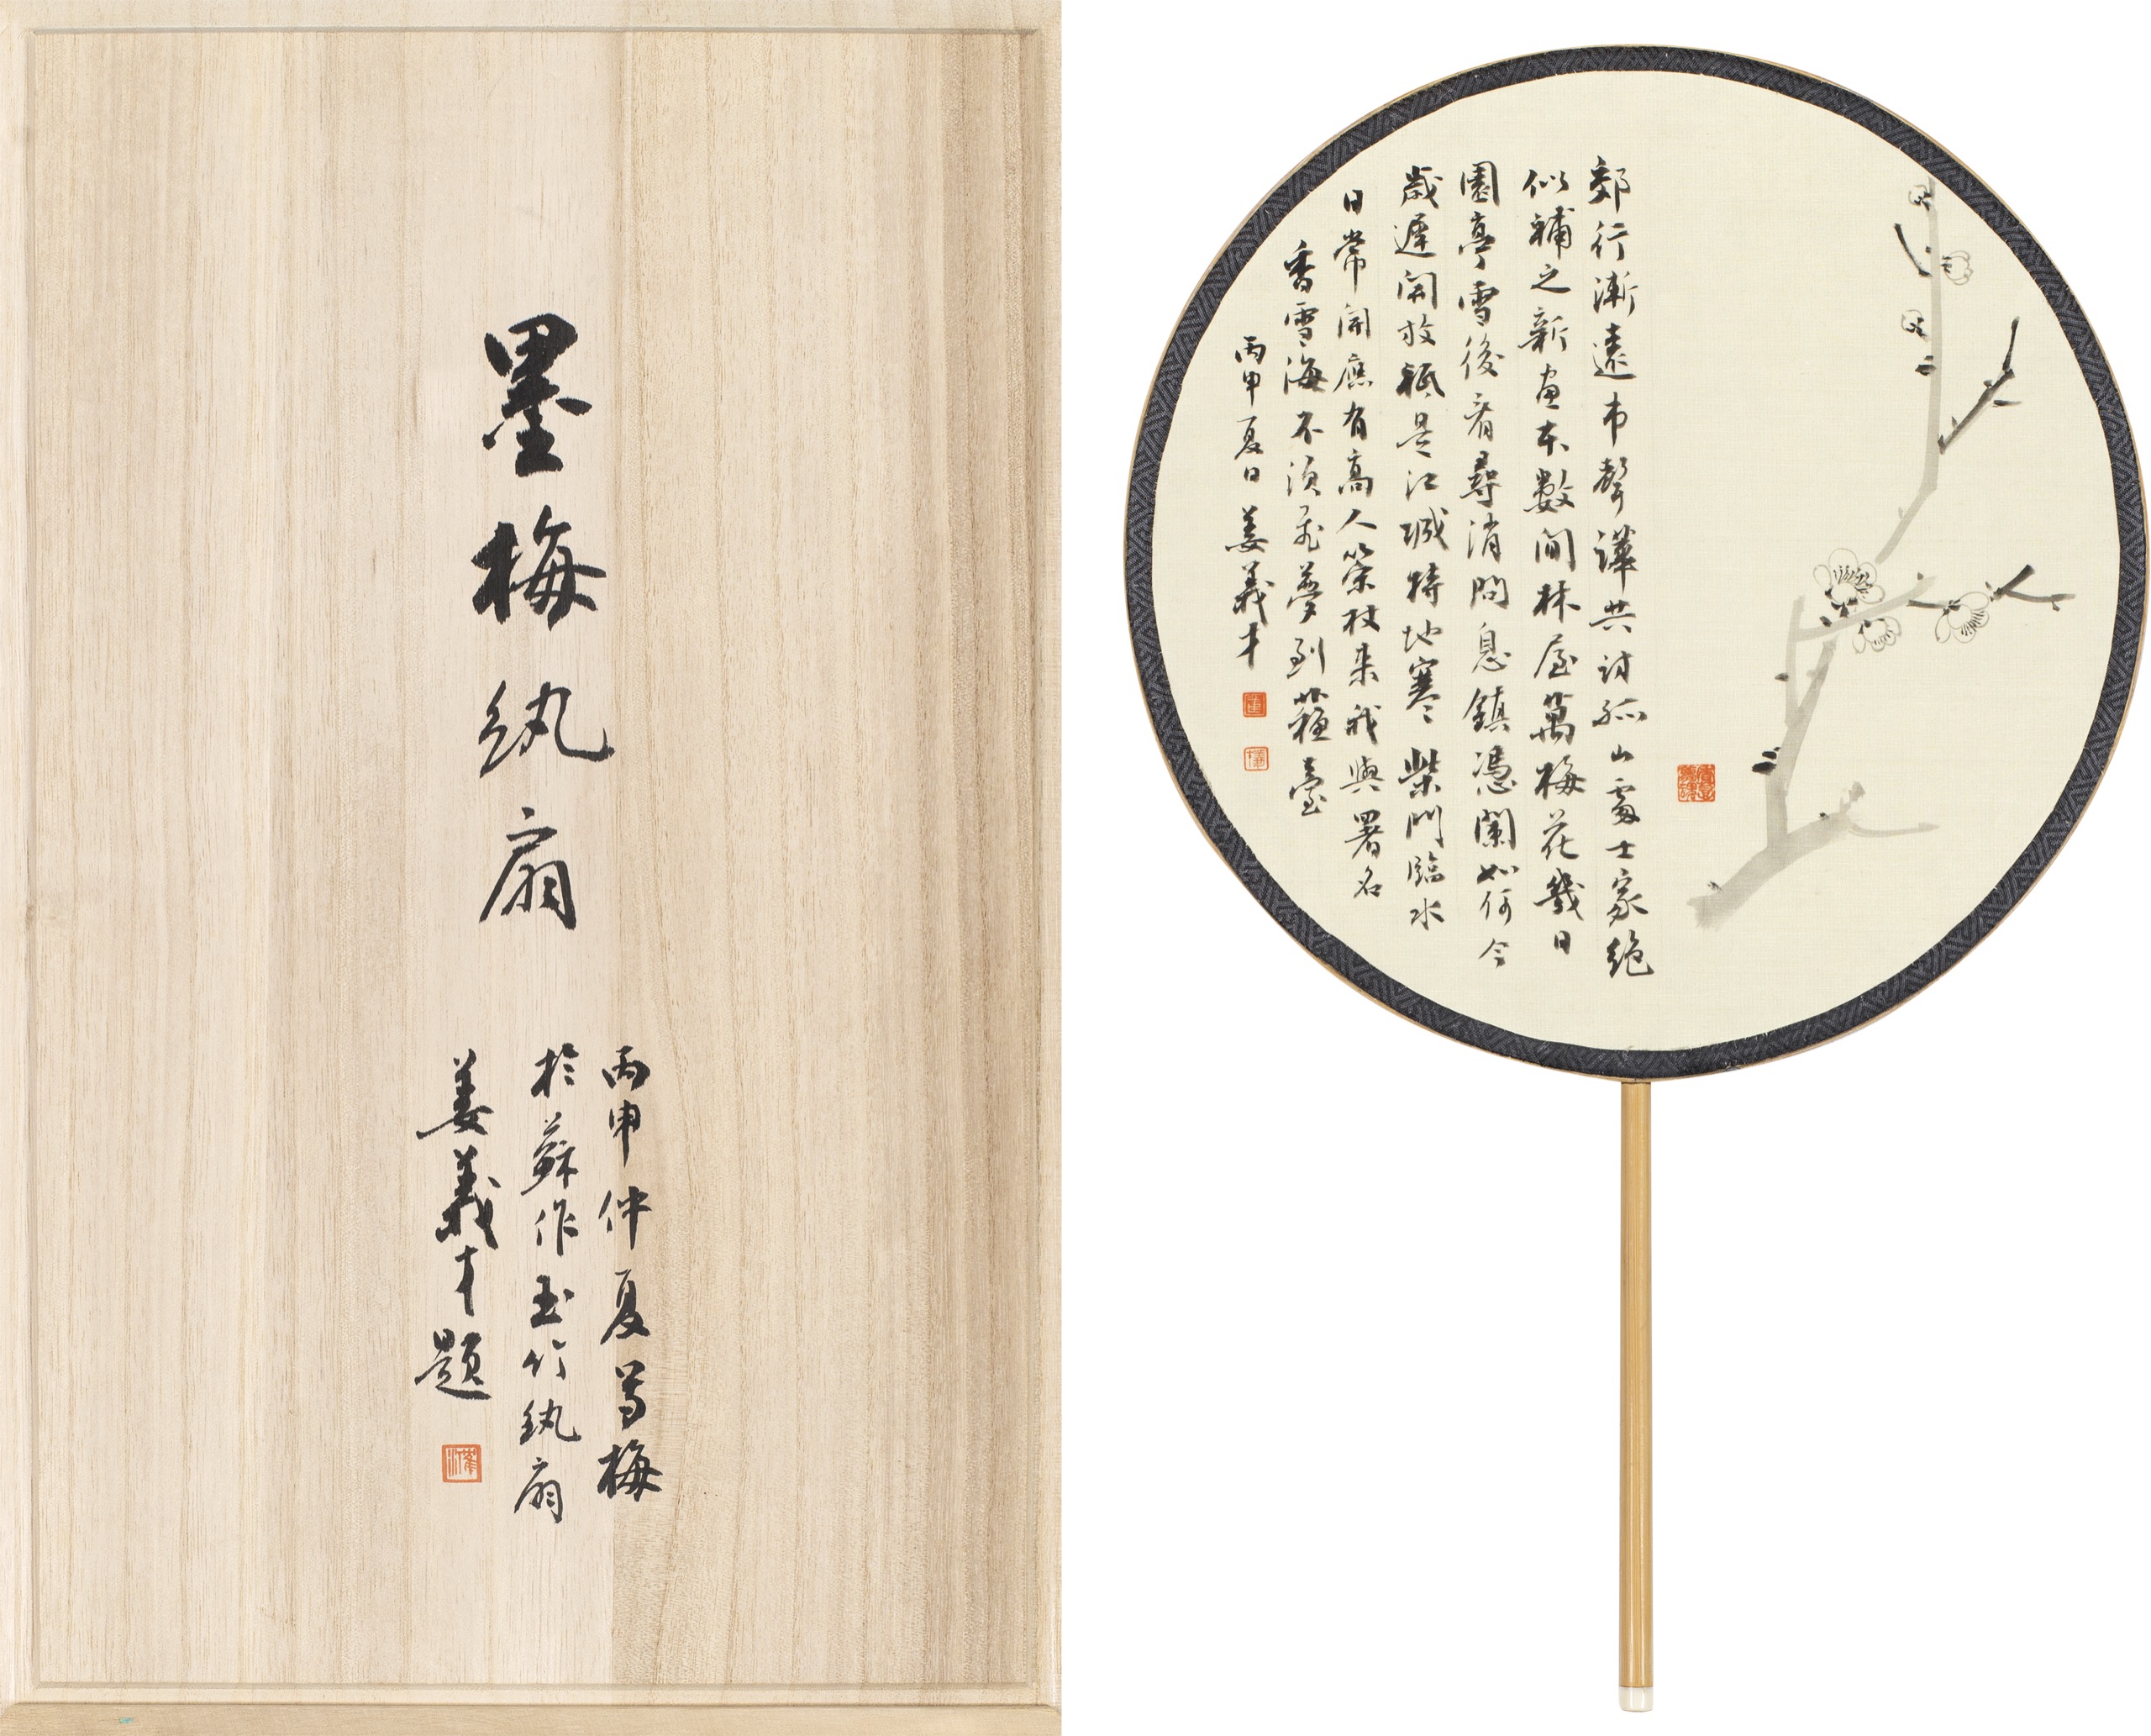 墨梅紈扇
丙申仲夏寫梅
於蘇作玉竹紈扇
姜義才題
郊行漸遠市聲譁共訪孤山處士家絕
似補之新畫本數間林屋萬梅花幾日
園亭雪後看尋消問息鎮憑闌如何今
歲遲開放祇是江城特地寒柴門臨水
日常開應有高人策杖來我與署名
香雪海不須飛夢到蘓臺
丙申夏日姜義才